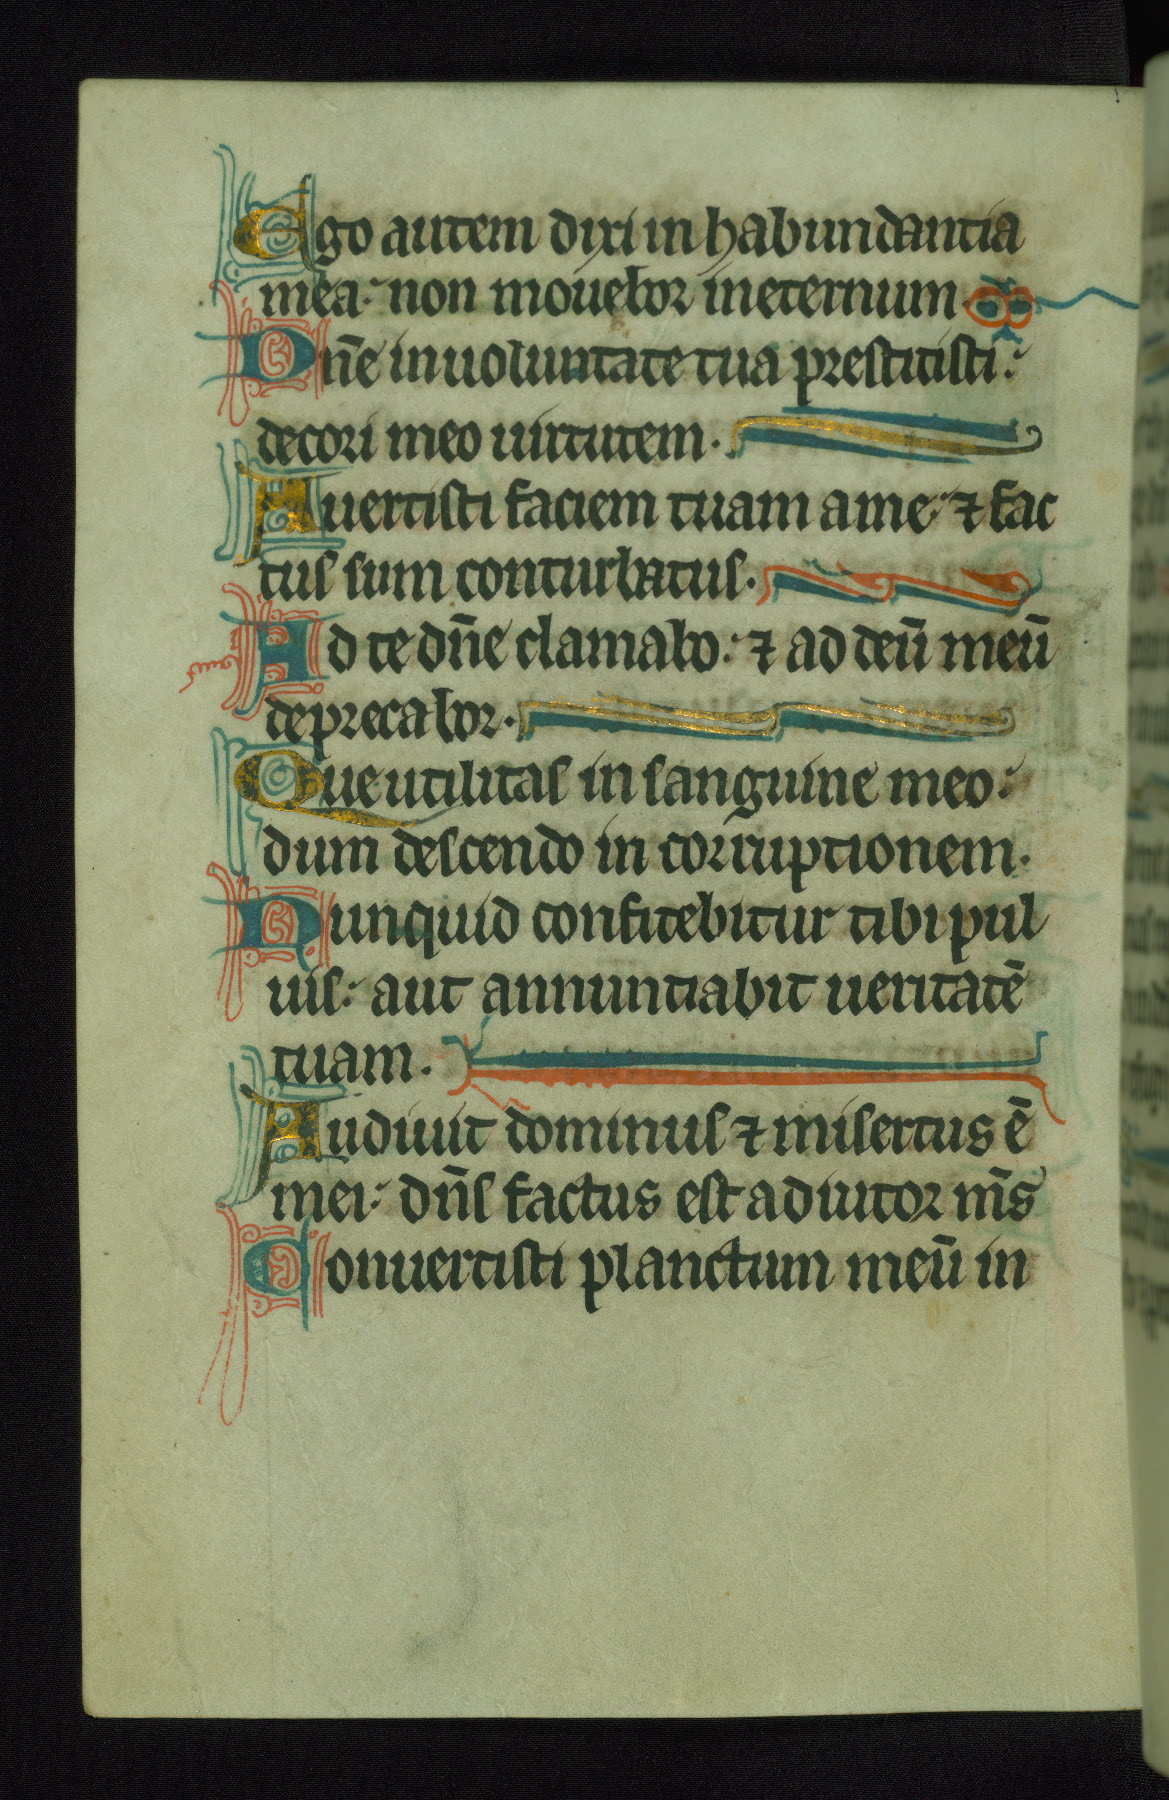 Ego autem dixi in habundantia
mea: non mouebor in eternum
Dn̄e in uoluntate tua prestitisti:
decori meo uirtutem.
Auertisti faciem tuam a me: ⁊ fac
tus sum conturbatus.
Ad te dn̄e clamabo: ⁊ ad deū meū
deprecabor.
Que utilitas in sanguine meo:
dum descendo in corruptionem.
Nunquid confitebitur tibi pul
uis: aut annuntiabit ueritatē
tuam.
Audiuit dominus ⁊ misertus ē
mei: dn̄s factus est adiutor m̄s
Conuertisti planctum meū in